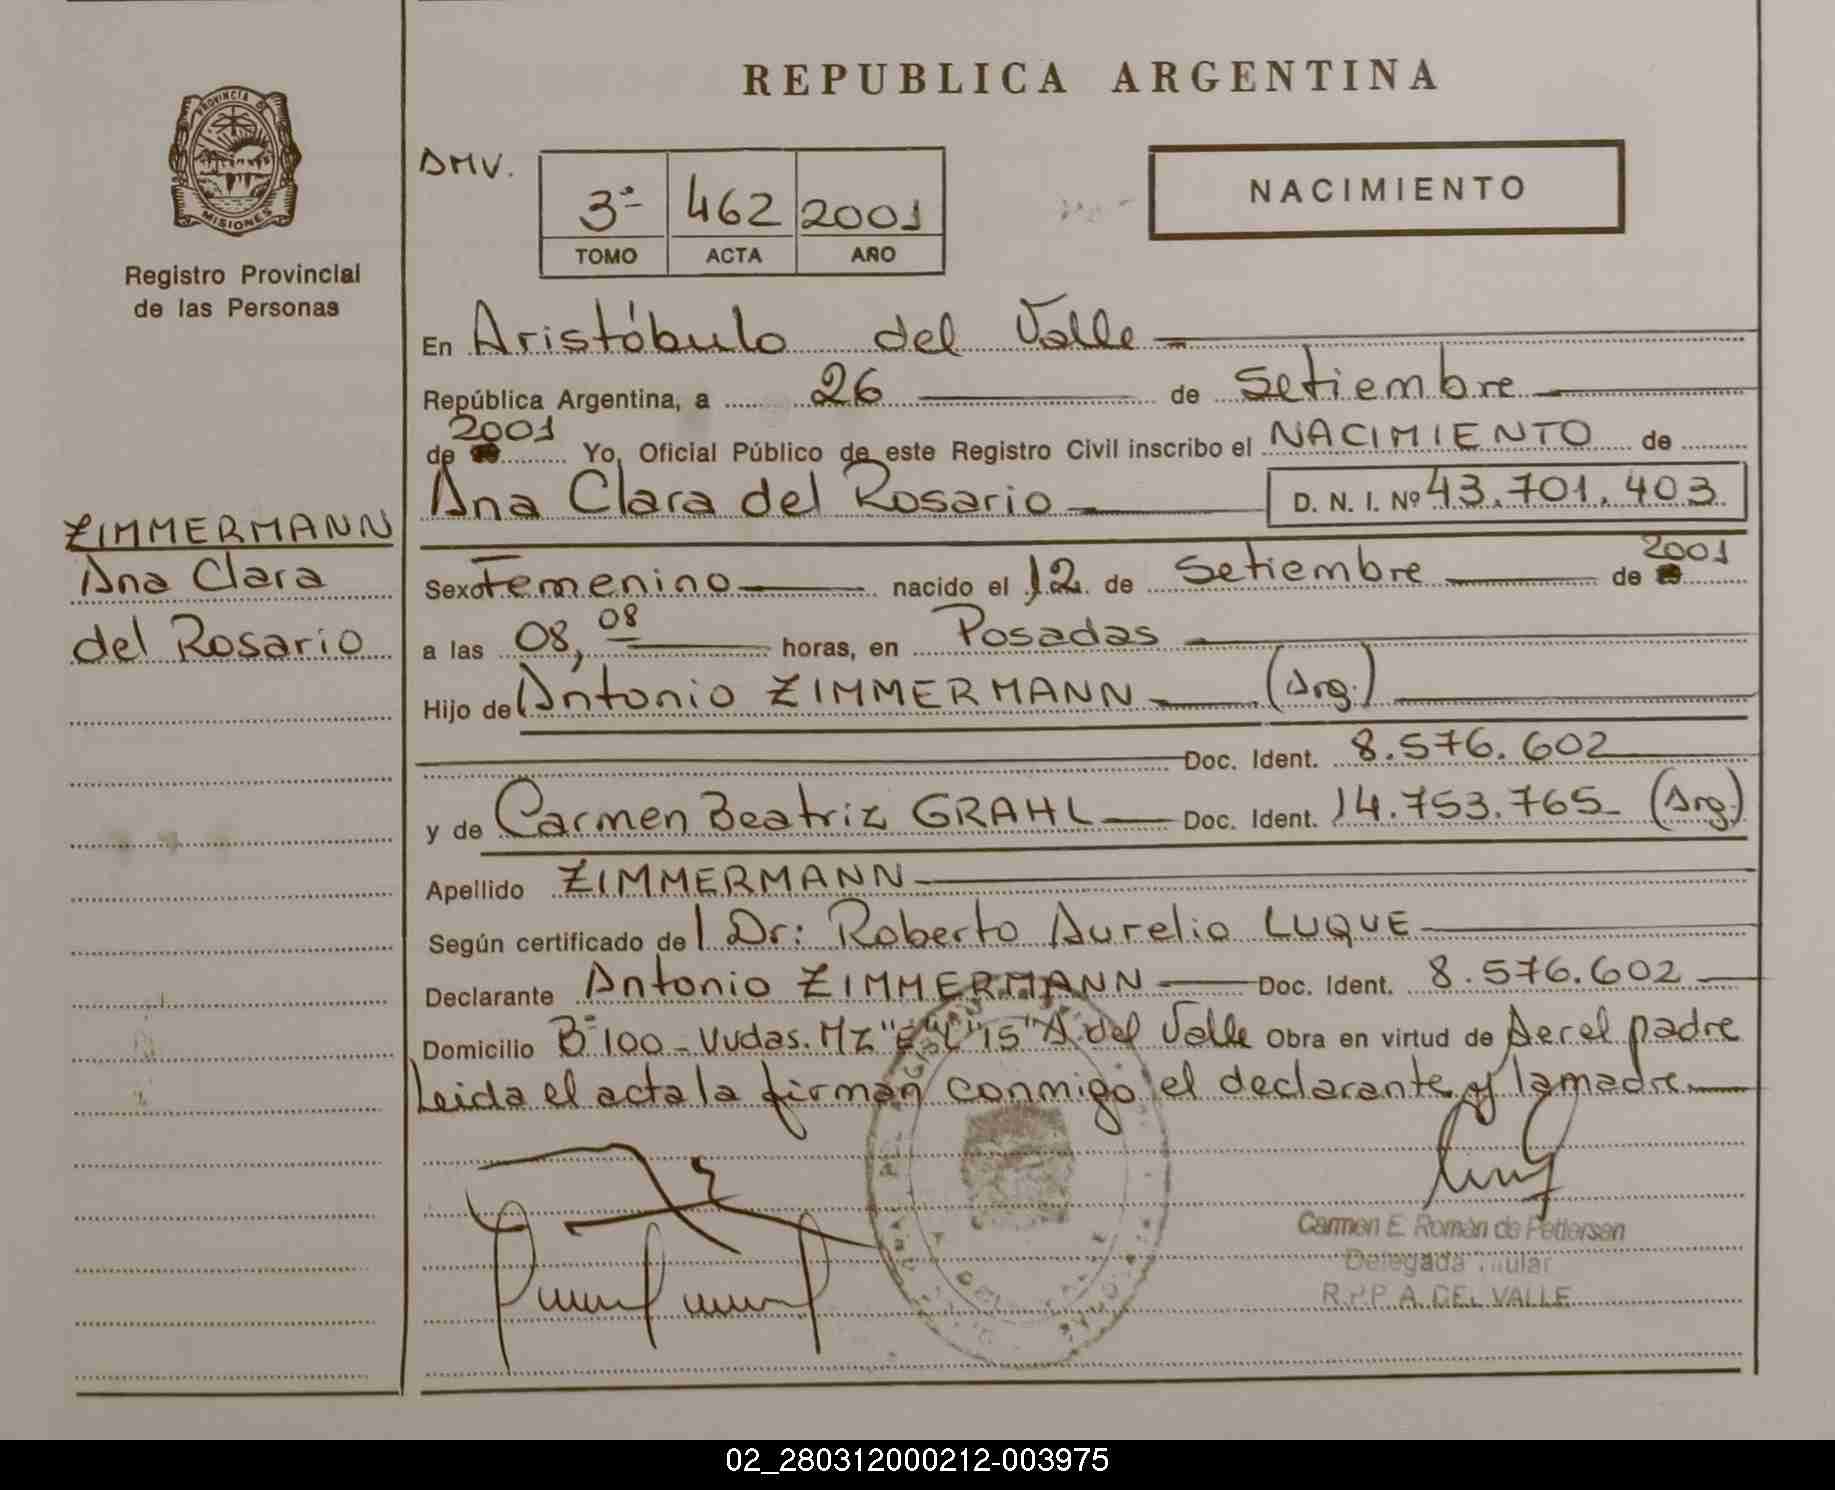 REPUBLICA ARGENTINA
PROVINCIA DE
MISIONES
Registro Provincial
de las Personas
AMV.
3ª 462 2001
TOMO ACTA AÑO
NACIMIENTO
En Aristóbulo del Valle
República Argentina, a 26 de Setiembre
de 2001 Yo, Oficial Público de este Registro Civil inscribo el NACIMIENTO de
Ana Clara del Rosario D. N. I. Nº 43.701.403
ZIMMERMANN
Ana Clara
del Rosario
Sexo Femenino nacido el 12 de Setiembre de 2001
a las 08,08 horas, en Posadas
Hijo de Antonio ZIMMERMANN (Arg.)
Doc. Ident. 8.576.602
y de Carmen Beatriz GRAHL Doc. Ident. 14.753.765 (Arg.)
Apellido ZIMMERMANN
Según certificado del Dr: Roberto Aurelio LUQUE
Declarante Antonio ZIMMERMANN Doc. Ident. 8.576.602
Domicilio Bº 100 - Vvdas. Mz "E" L "15" A. del Valle Obra en virtud de ser el padre
Leida el acta la firman conmigo el declarante y la madre
Carmen E. Román de Pedersen
Delegada Titular
R.P.P. A. DEL VALLE
02_280312000212-003975